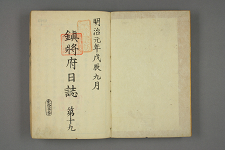 明治元年戊辰九月
鎮將府日誌 第十九